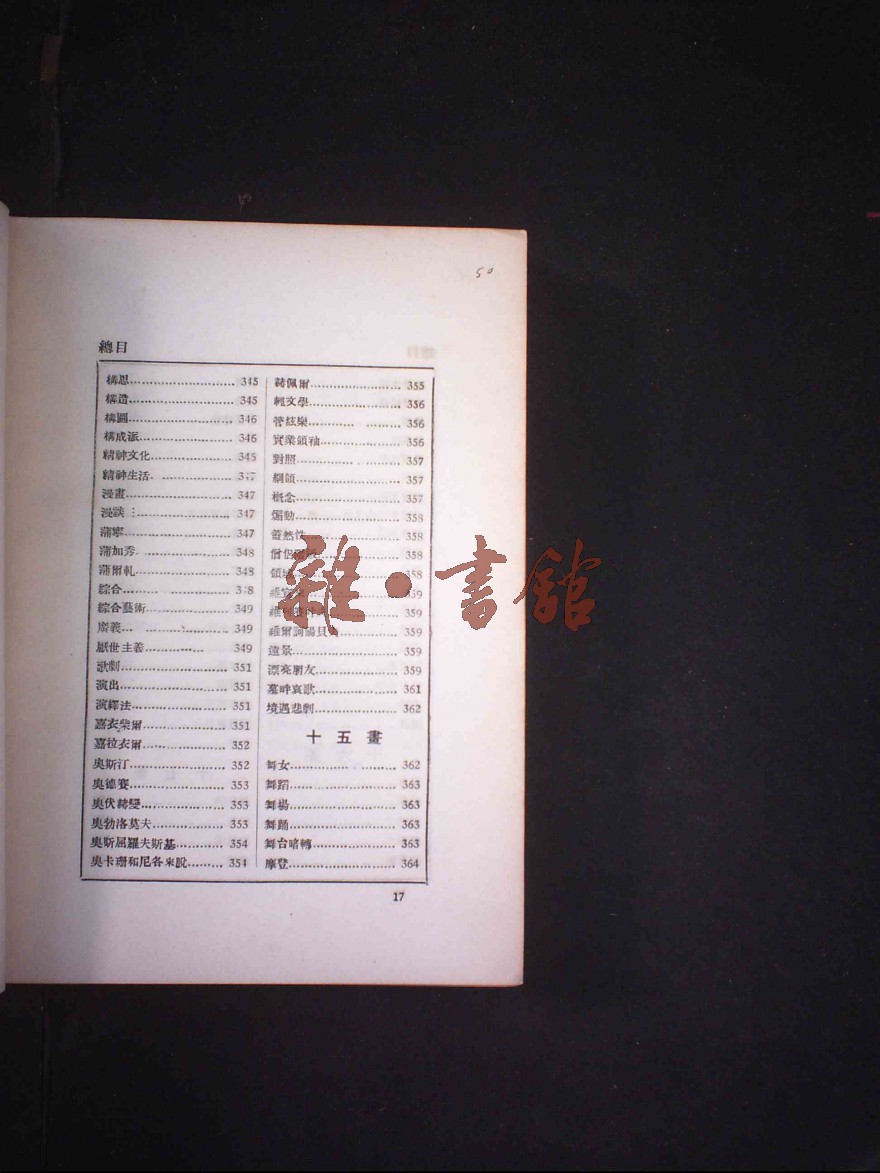 50
總目
構思 345
構造 345
構圖 346
構成派 346
精神文化 345
精神生活
漫畫 347
漫談 347
蒲寧 347
蒲加秀 348
蒲爾軋 348
綜合
綜合藝術 349
廣義 349
厭世主義 349
歌劇 351
演出 351
演繹法 351
嘉衣柴爾 351
嘉拉衣爾 352
奧斯汀 352
奧德賽 353
奧伏赫變 353
奧勃洛莫夫 353
奧斯屈羅夫斯基 354
奧卡珊和尼各來脫 354
赫佩爾 355
輕文學 356
管絃樂 356
實業領袖 356
對照 357
綱領 357
概念 357
煽動 358
蓋然性 358
僧侶 358
領域 358
359
359
維爾 359
遠景 359
漂亮朋友 359
墓畔哀歌 361
境遇悲劇 362
十五畫
舞女 362
舞蹈 363
舞楊 363
舞踊 363
舞台暗轉 363
摩登 364
17
雜·書館